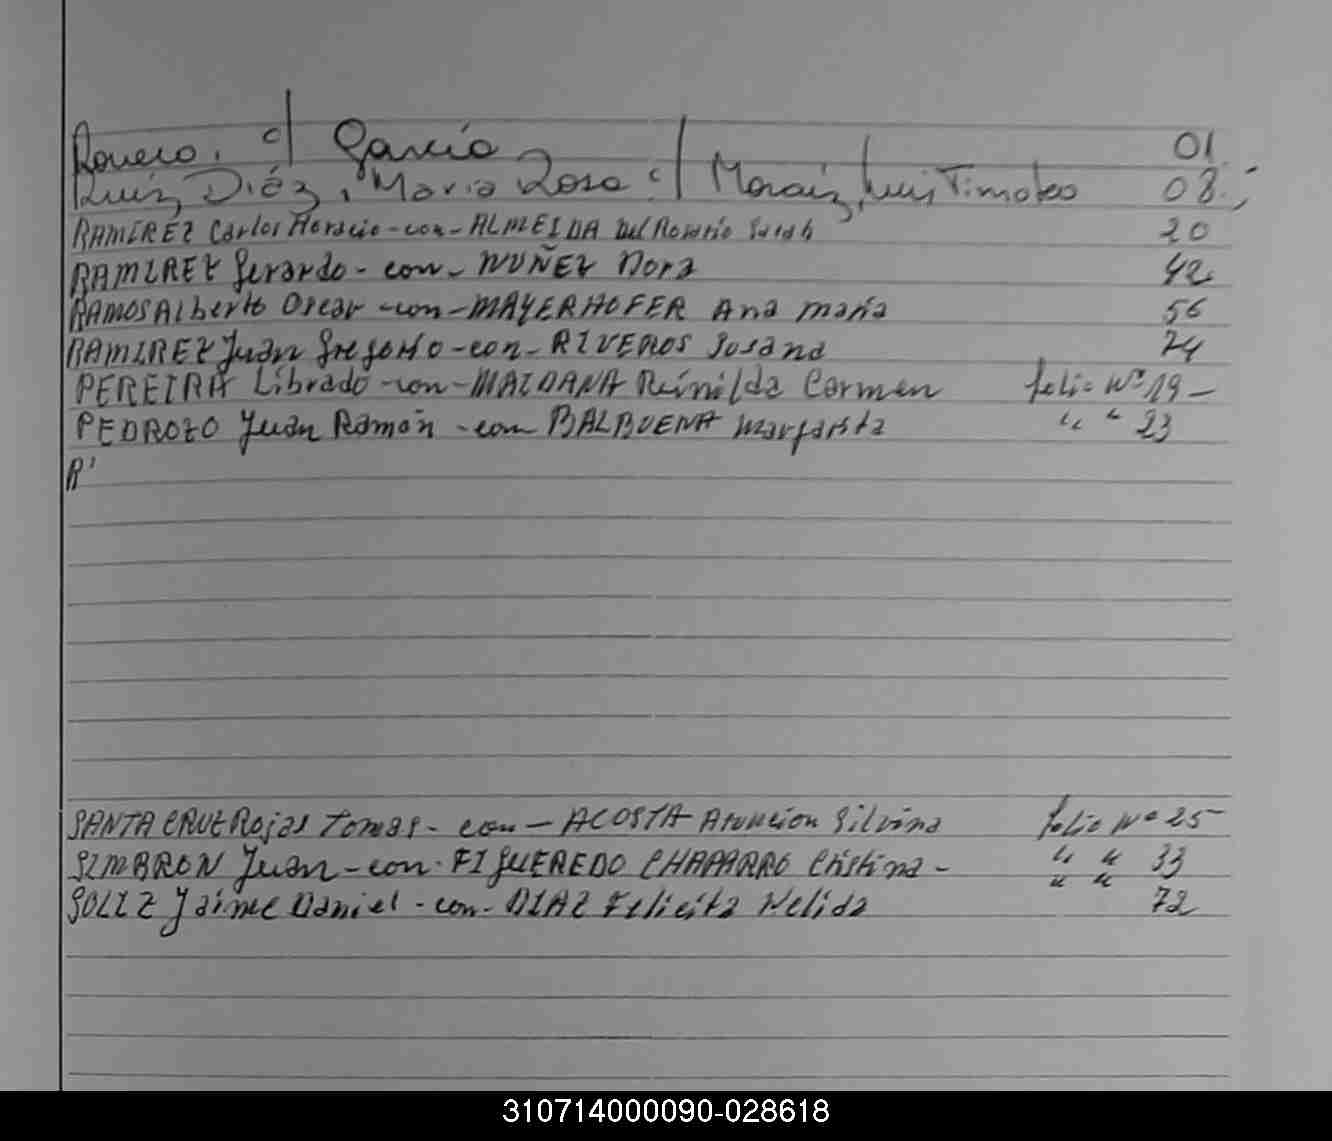 Romero, c/ García 01
Ruiz Diéz, María Rosa c/ Moraiz, Luis Timoteo 08.;
RAMIREZ Carlos Horacio-con-ALMEIDA Del Rosario Sarah 20
RAMIREZ Gerardo-con-NUÑEZ Nora 42
RAMOS Alberto Oscar-con-MAYERHOFER Ana maria 56
RAMIREZ Juan Gregorio-con-RIVEROS Susana 74
PEREIRA Librado-con-MAIDANA Reinilda Carmen folio Nº 19-
PEDROZO Juan Ramón-con BALBUENA Margarita " " 23
R'
SANTA CRUZ Rojas Tomas-con-ACOSTA Asuncion Silvina folio Nº 25
SIMBRON Juan-con-FIGUEREDO CHAPARRO Cristina- " " 33
SOLIZ Jaime Daniel-con-DIAZ Felicita Nelida " " 72
310714000090-028618